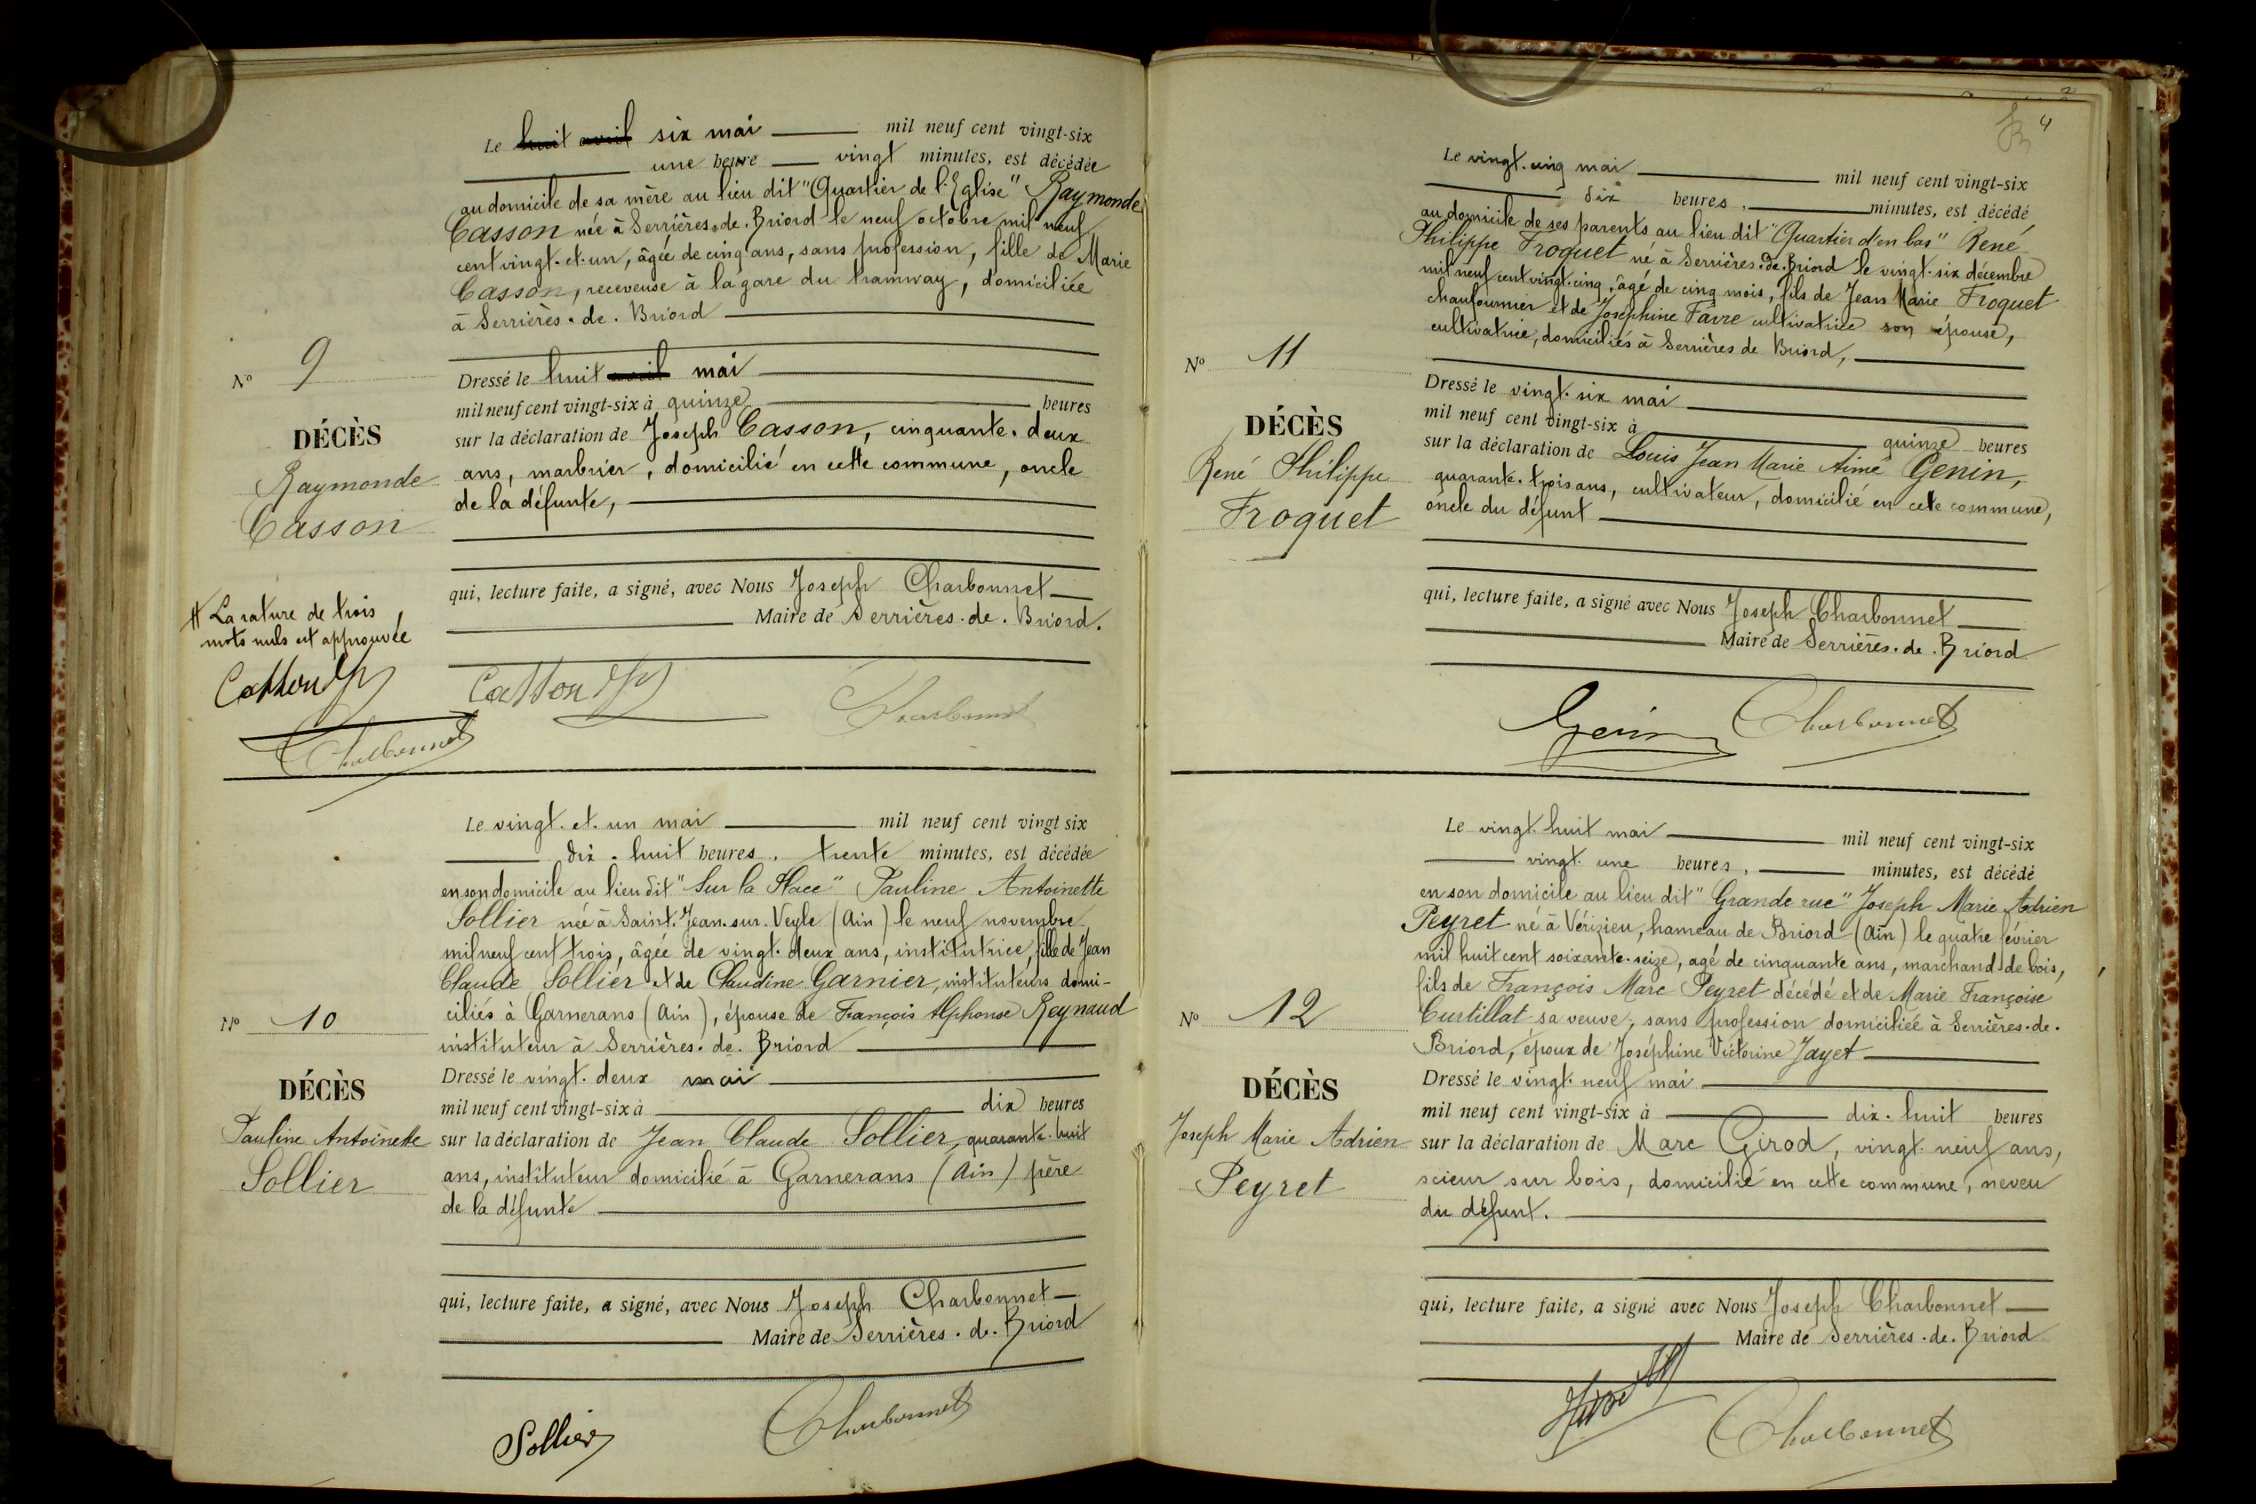 Le huit avril six mai mil neuf cent vingt-six
une heure vingt minutes, est décédée
au domicile de sa mère au lieu dit "Quartier de l'Eglise" Raymonde
Casson née à Serrières-de-Briord le neuf octobre mil neuf
cent vingt-et-un, âgée de cinq ans, sans profession, fille de Marie
Casson, receveuse à la gare du tramway, domiciliée
à Serrières-de-Briord
Nº 9
Dressé le huit avril mai
mil neuf cent vingt-six à quinze heures
DÉCÈS
sur la déclaration de Joseph Casson, cinquante-deux
Raymonde
ans, marbrier, domicilié en cette commune, oncle
Casson
de la défunte,
qui, lecture faite, a signé, avec Nous Joseph Charbonnet
Maire de Serrières-de-Briord.
# La rature de trois
mots nuls est approuvée
Casson
Charbonnet
Casson
Charbonnet
Le vingt-et-un mai mil neuf cent vingt six
dix-huit heures, trente minutes, est décédée
en son domicile au lieu dit "Sur la Place" Pauline Antoinette
Sollier née à Saint-Jean-sur-Veyle (Ain) le neuf novembre
mil neuf cent trois, âgée de vingt-deux ans, institutrice, fille de Jean
Claude Sollier et de Claudine Garnier, instituteurs domi-
ciliés à Garnerans (Ain), épouse de François Alphonse Reynaud
instituteur à Serrières-de-Briord
Nº 10
Dressé le vingt-deux mai
mil neuf cent vingt-six à dix heures
DÉCÈS
Pauline Antoinette
Sollier
sur la déclaration de Jean Claude Sollier, quarante-huit
ans, instituteur domicilié à Garnerans (Ain) père
de la défunte
qui, lecture faite, a signé, avec Nous Joseph Charbonnet
Maire de Serrières-de-Briord
Sollier
Charbonnet
4
Le vingt-cinq mai mil neuf cent vingt-six
dix heures, minutes, est décédé
au domicile de ses parents au lieu dit "Quartier d'en bas" René
Philippe Froquet né à Serrières-de-Briord le vingt-six décembre
mil neuf cent vingt-cinq, âgé de cinq mois, fils de Jean Marie Froquet
chaufournier et de Joséphine Favre cultivatrice son épouse,
cultivatrice, domiciliés à Serrières de Briord,
Nº 11
Dressé le vingt-six mai
mil neuf cent vingt-six à quinze heures
DÉCÈS
René Philippe
Froquet
sur la déclaration de Louis Jean Marie Aimé Genin,
quarante-trois ans, cultivateur, domicilié en cette commune,
oncle du défunt
qui, lecture faite, a signé avec Nous Joseph Charbonnet
Maire de Serrières-de-Briord
Genin
Charbonnet
Le vingt-huit mai mil neuf cent vingt-six
vingt-une heures, minutes, est décédé
en son domicile au lieu dit "Grande rue" Joseph Marie Adrien
Peyret né à Vérizieu, hameau de Briord (Ain) le quatre février
mil huit cent soixante-seize, agé de cinquante ans, marchand de bois,
fils de François Marc Peyret décédé et de Marie Françoise
Curtillat sa veuve, sans profession domiciliée à Serrières-de-
Briord, époux de Joséphine Victorine Jayet
Nº 12
Dressé le vingt-neuf mai
mil neuf cent vingt-six à dix-huit heures
DÉCÈS
Joseph Marie Adrien
Peyret
sur la déclaration de Marc Girod, vingt-neuf ans,
scieur sur bois, domicilié en cette commune, neveu
du défunt.
qui, lecture faite, a signé avec Nous Joseph Charbonnet
Maire de Serrières-de-Briord
Charbonnet